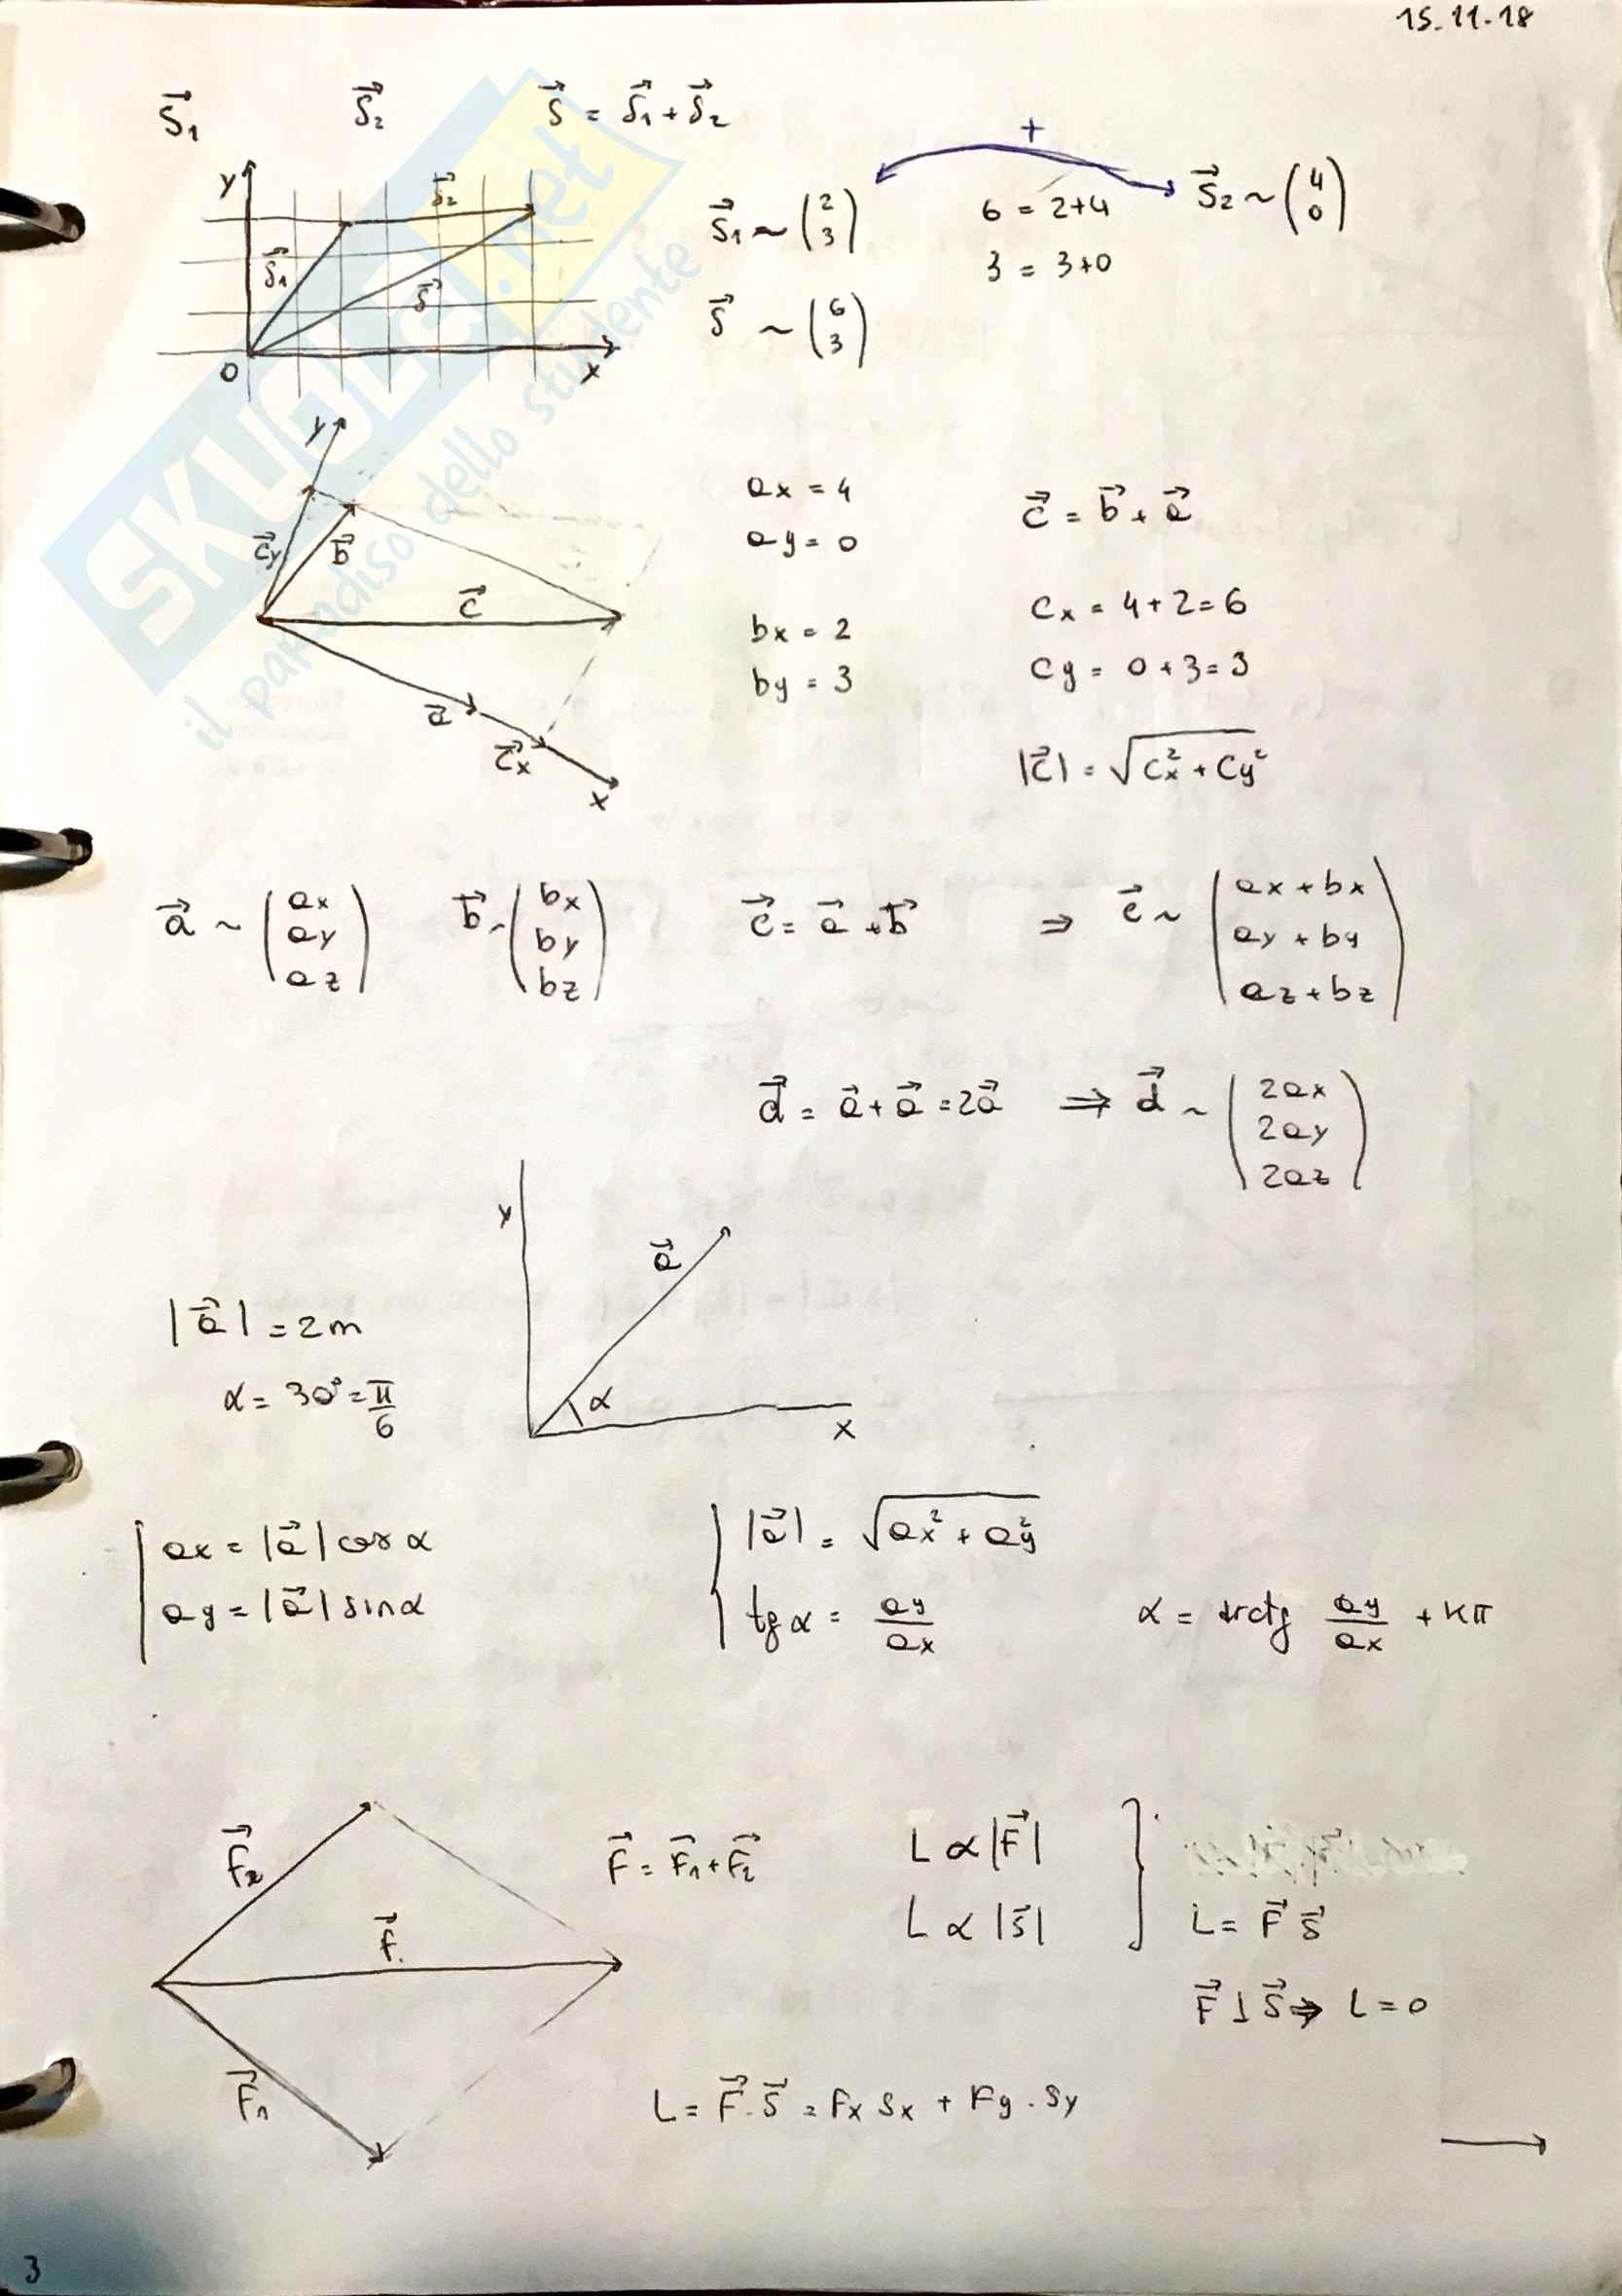 15.11.18
S⃗₁ S⃗₂ S⃗ = S⃗₁ + S⃗₂
+
y
S⃗₂
S⃗₁
S⃗
O
x
S⃗₁ ~ (2 3)
6 = 2+4
3 = 3+0
S⃗₂ ~ (4 0)
S⃗ ~ (6 3)
SKUOLA.net
il paradiso dello studente
y
c⃗y
b⃗
c⃗
a⃗
c⃗x
x
ax = 4
ay = 0
bx = 2
by = 3
c⃗ = b⃗ + a⃗
cx = 4+2=6
cy = 0+3=3
|c⃗| = √(cx² + cy²)
a⃗ ~ (ax ay az) b⃗ ~ (bx by bz) c⃗ = a⃗ + b⃗ ⇒ c⃗ ~ (ax+bx ay+by az+bz)
d⃗ = a⃗ + a⃗ = 2a⃗ ⇒ d⃗ ~ (2ax 2ay 2az)
y
a⃗
α
x
|a⃗| = 2m
α = 30° = π/6
ax = |a⃗| cos α
ay = |a⃗| sin α
|a⃗| = √(ax² + ay²)
tg α = ay/ax
α = arctg ay/ax + kπ
F⃗₂
F⃗
F⃗₁
F⃗ = F⃗₁ + F⃗₂
L ∝ |F⃗|
L ∝ |s⃗|
L = F⃗ s⃗
F⃗ ⊥ s⃗ ⇒ L = 0
L = F⃗ · s⃗ = Fx sx + Fy · sy
3